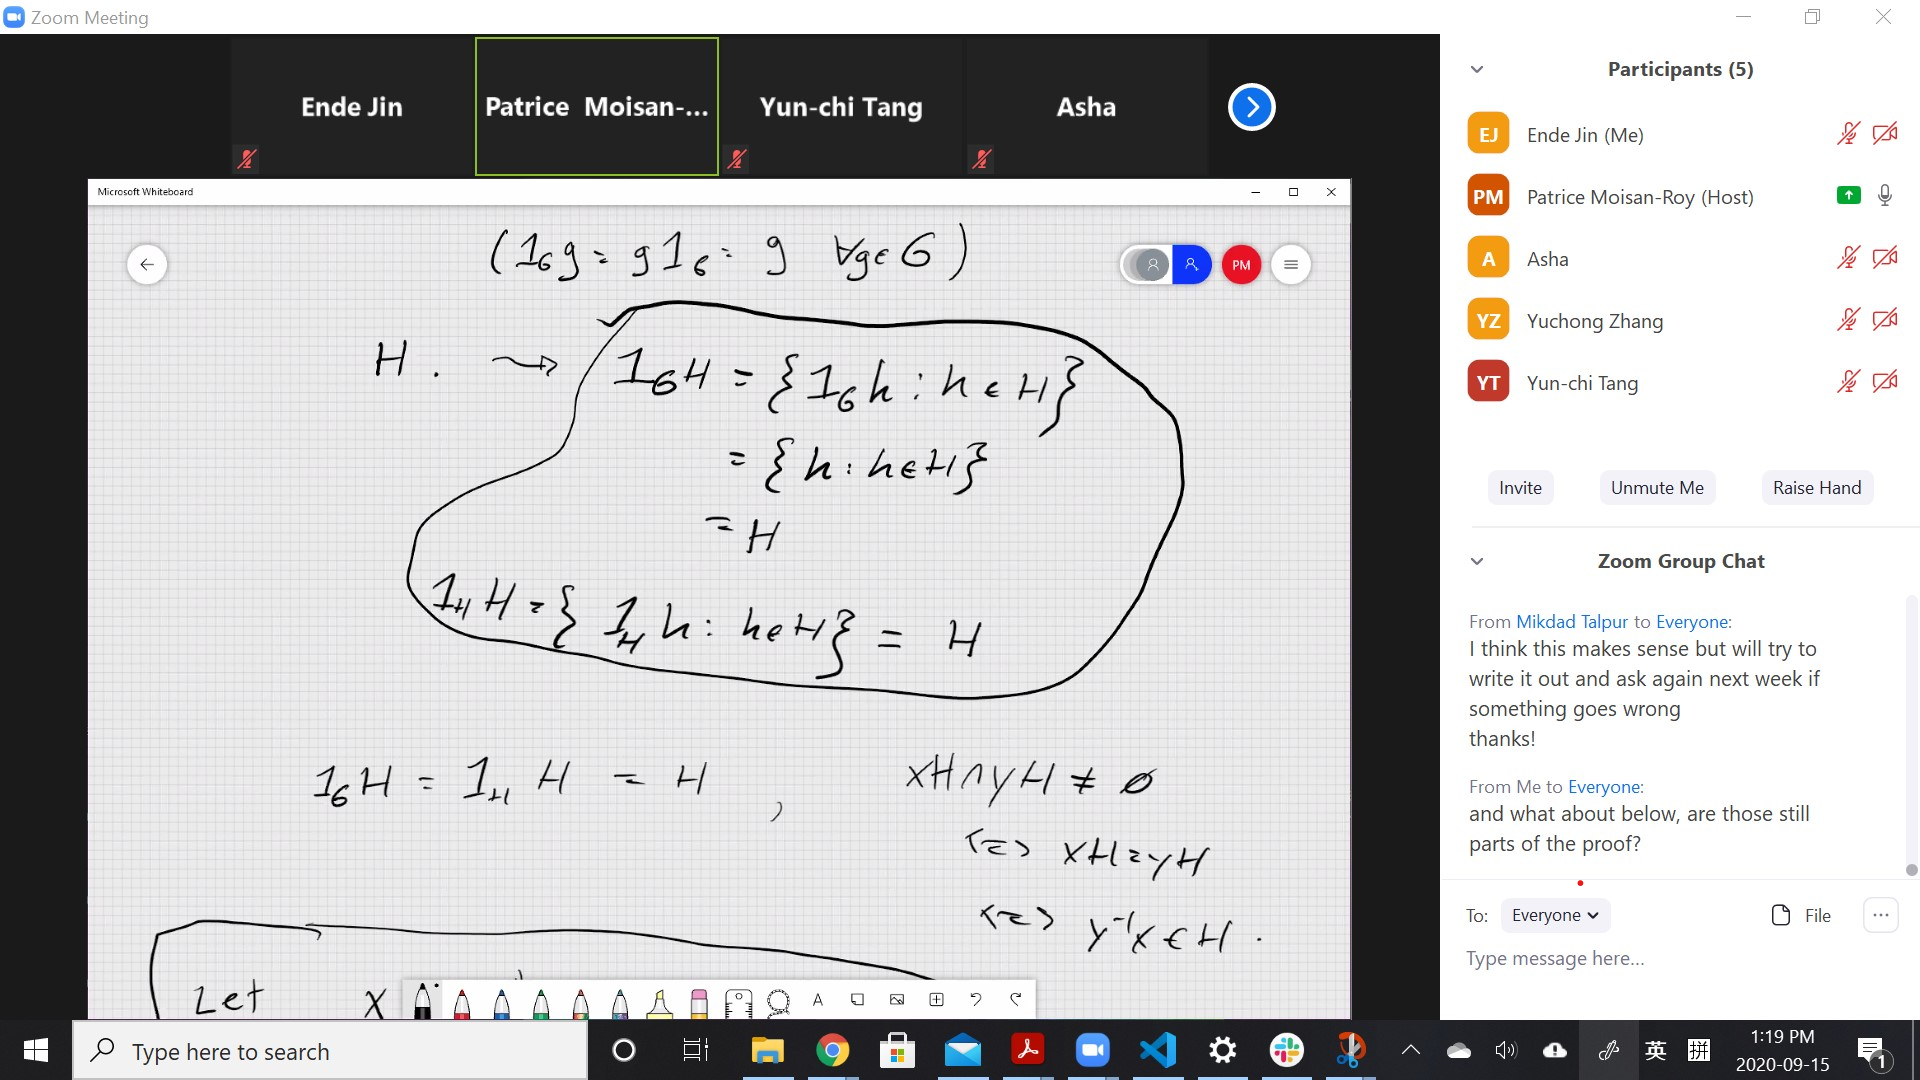 Zoom Meeting
Ende Jin
Patrice Moisan-...
Yun-chi Tang
Asha
Microsoft Whiteboard
(1_G g = g 1_G = g ∀g∈G)
PM
H. ⇝ 1_G H = {1_G h : h ∈ H}
= {h : h∈H}
= H
1_H H = {1_H h : h∈H} = H
1_G H = 1_H H = H ,
xH∩yH ≠ ∅
<=> xH=yH
<=> y⁻¹x ∈ H .
Let x
A
Participants (5)
EJ Ende Jin (Me)
PM Patrice Moisan-Roy (Host)
A Asha
YZ Yuchong Zhang
YT Yun-chi Tang
Invite Unmute Me Raise Hand
Zoom Group Chat
From Mikdad Talpur to Everyone:
I think this makes sense but will try to
write it out and ask again next week if
something goes wrong
thanks!
From Me to Everyone:
and what about below, are those still
parts of the proof?
To: Everyone File ...
Type message here...
Type here to search
英 拼
1:19 PM
2020-09-15
1